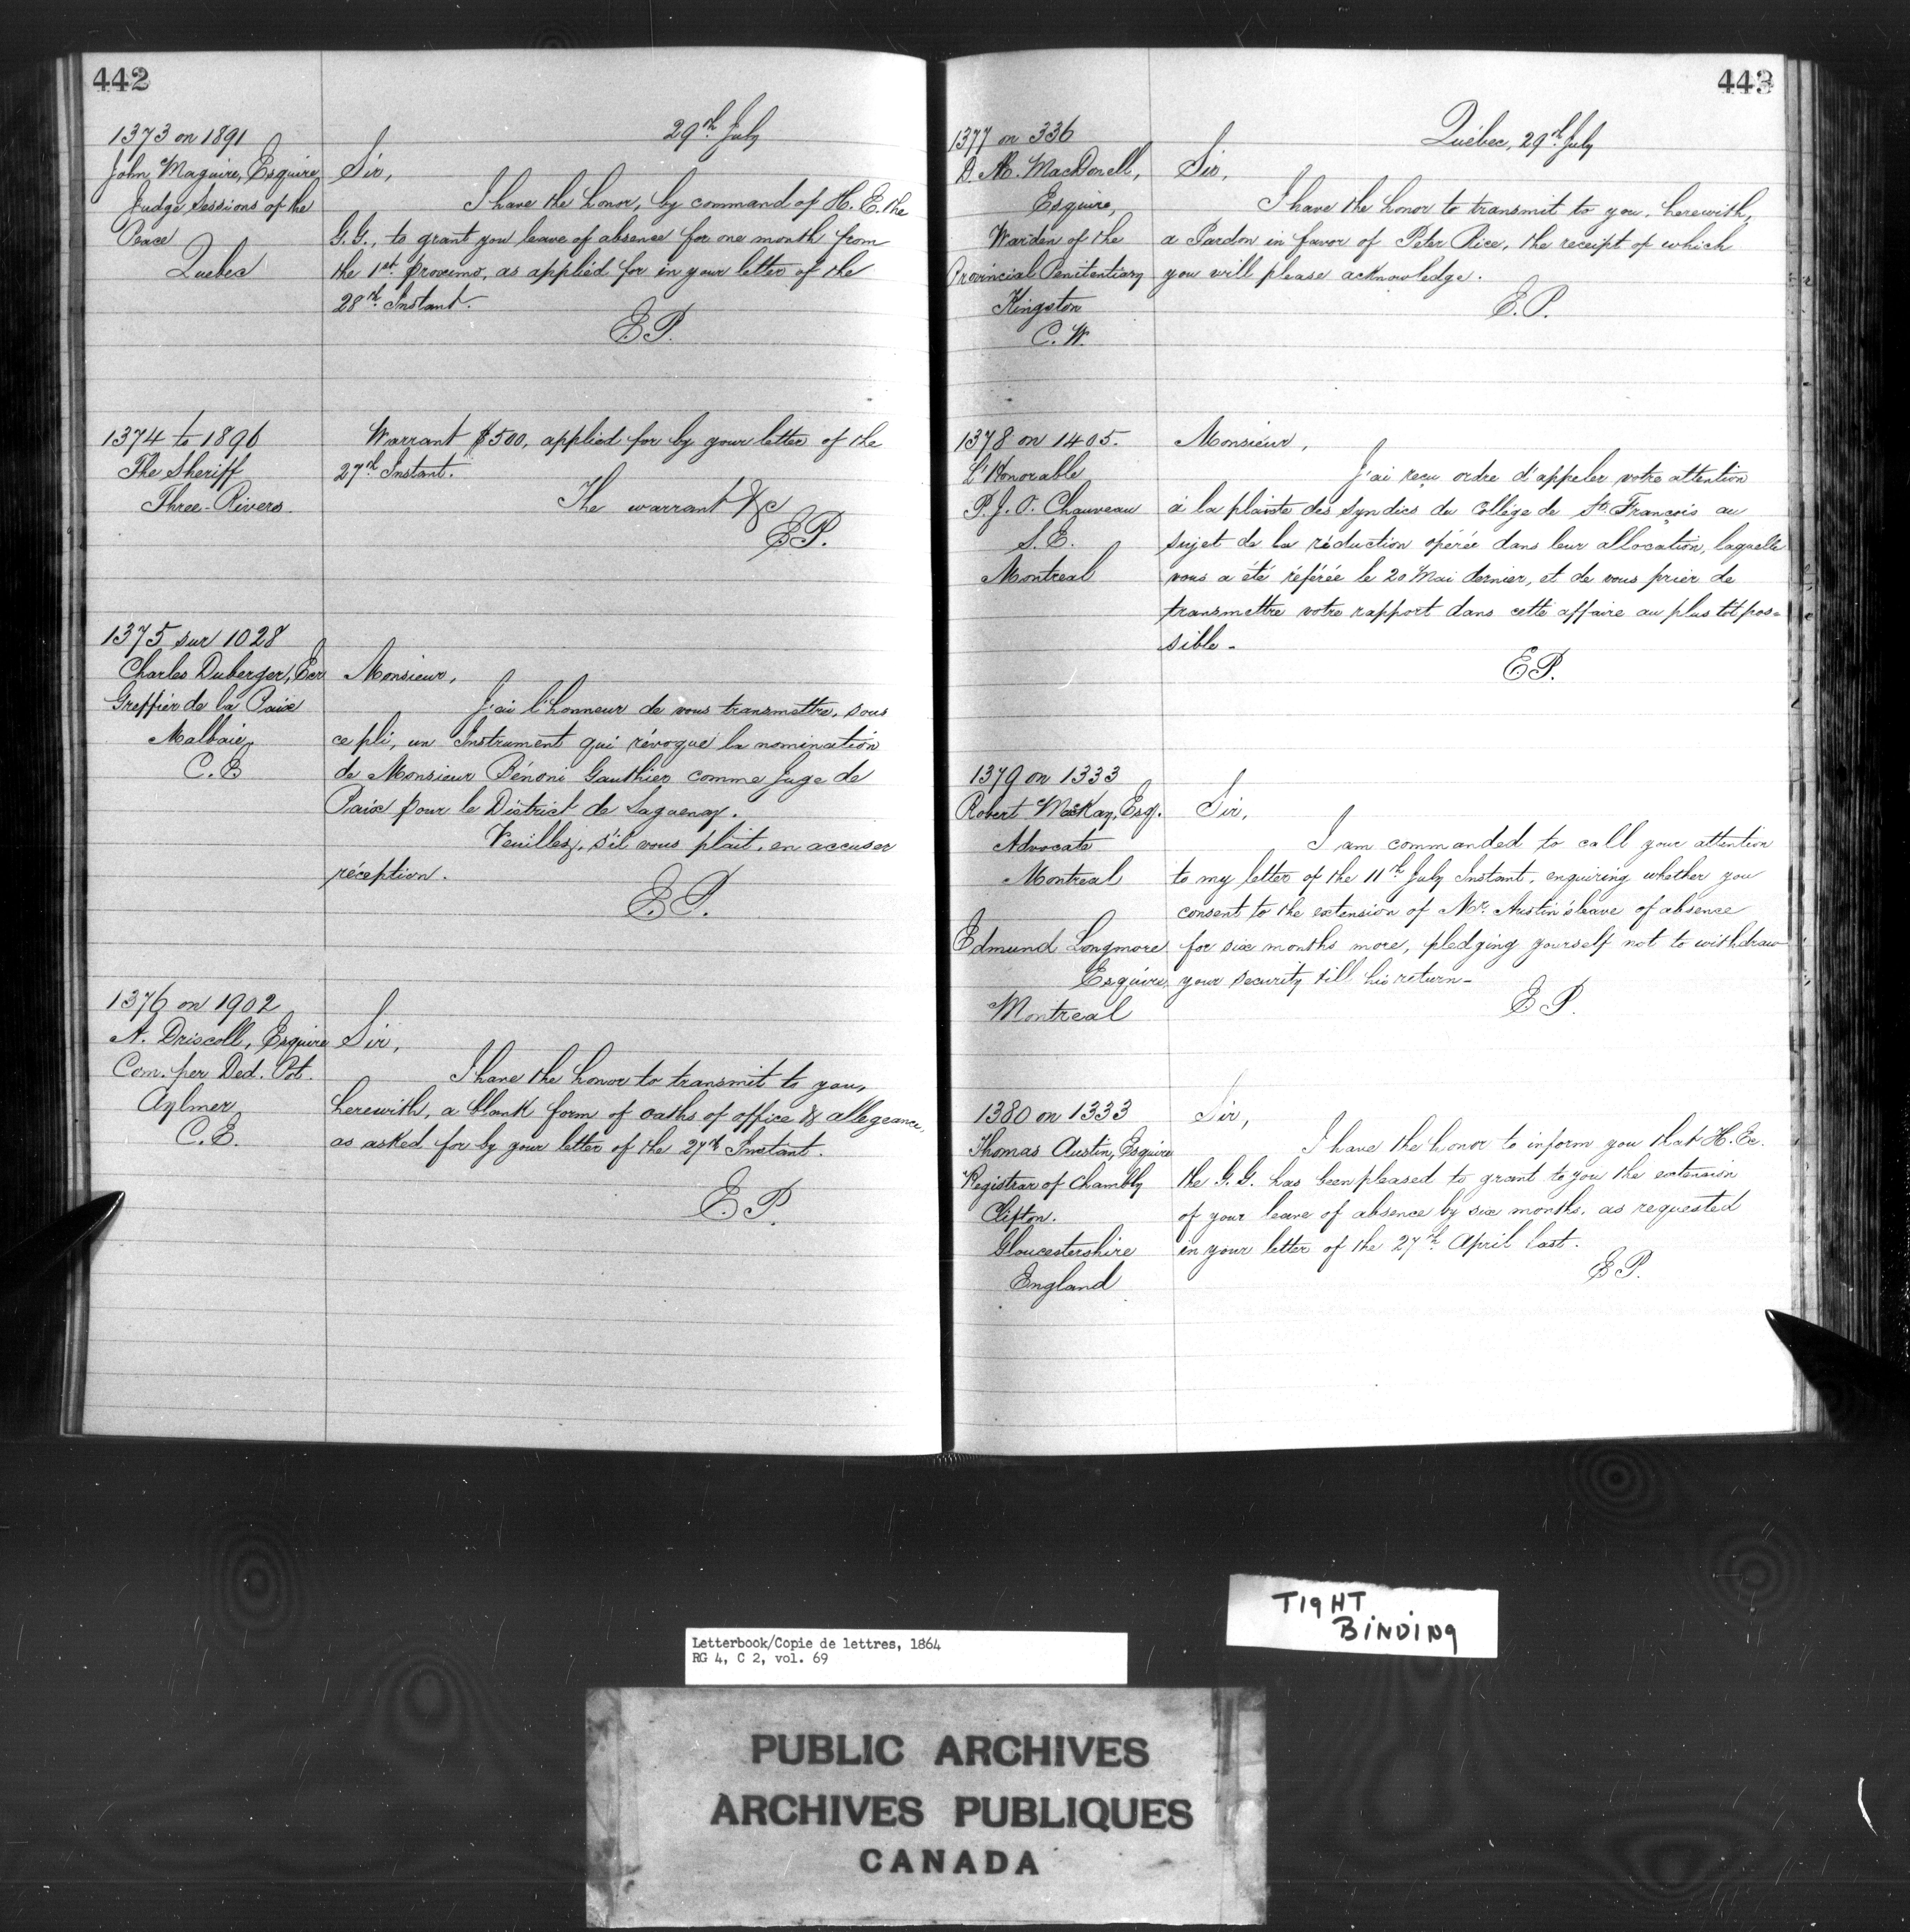 442
29th July
1373 on 1891
John Maguire, Esquire
Judge Sessions of the
Peace
Quebec
Sir,
I have the honor, by command of H. E. the
G. G., to grant you leave of absence for one month from
the 1st proximo, as applied for in your letter of the
28th Instant.
E.P.
1374 to 1896
The Sheriff
Three-Rivers.
Warrant $500, applied for by your letter of the
27th Instant.
The warrant &c
E.P.
1375 sur 1028
Charles Duberger, Ecr
Greffier de la Paix
Malbaie,
Monsieur,
J'ai l'honneur de vous transmettre, sous
ce pli, un Instrument qui révoque la nomination
de Monsieur Bénoni Gauthier comme Juge de
Paix pour le District de Saguenay.
Veuillez, s'il vous plait, en accuser
réception.
E.P.
1376 on 1902
A. Driscoll, Esquire
Com. per Ded. Pot.
Aylmer
C.E.
Sir,
I have the honor to transmit to you,
herewith, a blank form of oaths of office & allegeance,
as asked for by your letter of the 27th Instant.
E.P.
443
Québec, 29th July
1377 on 336
MacDonell,
Esquire,
Warden of the
Provincial Penitentiary
Kingston
C.W.
Sir,
I have the honor to transmit to you, herewith,
a Pardon in favor of Peter Rice, the receipt of which
you will please acknowledge.
E.P.
1378 on 1405.
L'Honorable
P. J. O. Chauveau
S. E.
Montreal
Monsieur,
J'ai reçu ordre d'appeler votre attention
à la plainte des Syndics du Collège de St. François au
sujet de la réduction opérée dans leur allocation, laquelle
vous a été référée le 20 Mai dernier, et de vous prier de
transmettre votre rapport dans cette affaire au plus tôt pos=
sible -
E.P.
1379 on 1333
Robert MacKay, Esq.
Advocate
Montreal
Edmund Longmore
Esquire
Montreal
Sir,
I am commanded to call your attention
to my letter of the 11th July Instant, enquiring whether you
consent to the extension of Mr. Austin's leave of absence
for six months more, pledging yourself not to withdraw
your security till his return -
E.P.
1380 on 1333
Thomas Austin, Esquire
Registrar of Chambly
Clifton.
Gloucestershire
England
Sir,
I have the honor to inform you that H. Ex.
the G. G. has been pleased to grant to you the extension
of your leave of absence by six months, as requested
in your letter of the 27th April last.
E.P.
TIGHT
BINDING
Letterbook/Copie de lettres, 1864
RG 4, C 2, vol. 69
PUBLIC ARCHIVES
ARCHIVES PUBLIQUES
CANADA